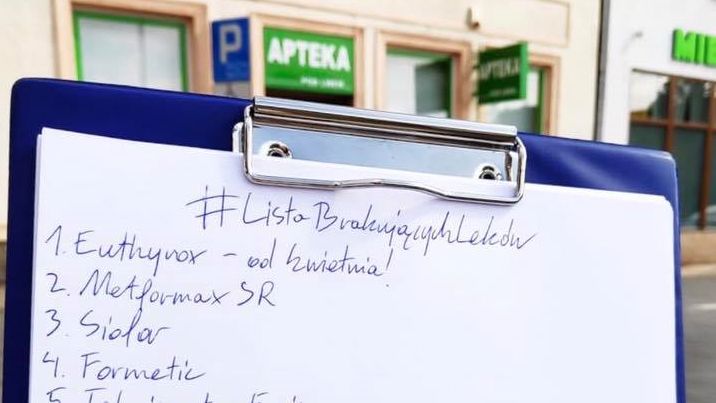 P
APTEKA
APTEKA
#ListaBrakującychLeków
1. Euthyrox - od kwietnia!
2. Metformax SR
3. Siofor
4. Formetic
5.